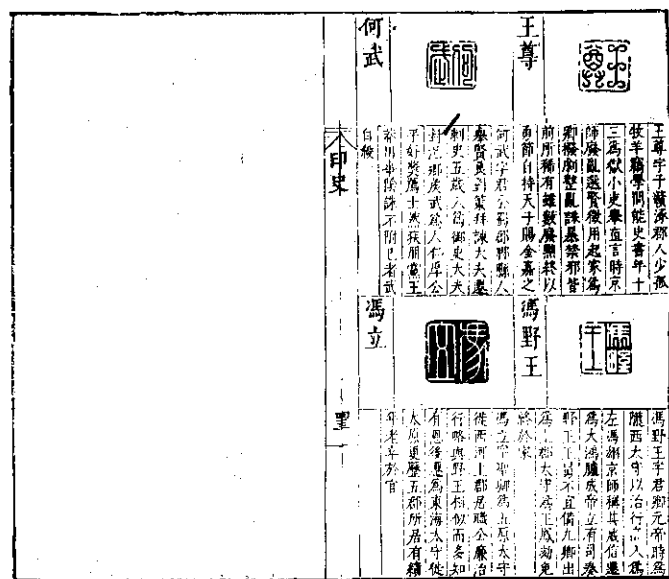 王尊
王尊字子贛涿郡人少孤
牧羊竊學問能史書年十
三為獄小吏舉直言時京
師廢亂選賢徵用起家為
卿撥劇整亂誅暴禁邪皆
前所稀有雖數廢黜終以
勇節自持天子賜金嘉之
何武
何武字君公蜀郡郫縣人
舉賢良對策拜諫大夫遷
刺史五歲入為御史大夫
封氾鄉侯武為人仁厚公
平好獎薦士然疾朋黨王
莽用事陰誅不附已者武
自殺
馮野王
馮野王字君卿元帝時為
隴西太守以治行高入為
左馮翊京師稱其威信遷
為大鴻臚成帝立有司奏
野王王舅不宜備九卿出
為上郡太守為王鳳劾免
終於家
馮立
馮立字聖卿為五原太守
徙西河上郡居職公廉治
行略與野王相似而多知
有恩後遷為東海太守徙
太原更歷五郡所居有績
年老卒於官
印史